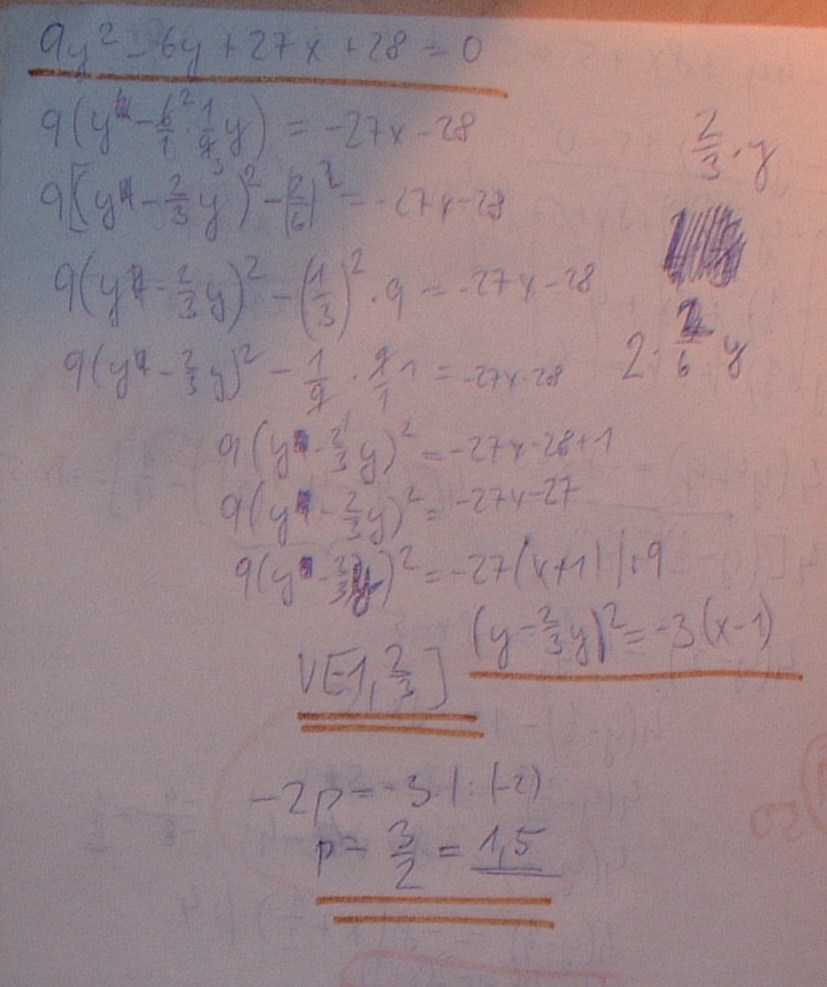 9y² - 6y + 27x + 28 = 0
9(y - 6/1 · 1/9 y)² = -27x - 28
9[(y - 2/3 y)² - (2/6)² = -27x - 28
9(y - 2/3 y)² - (1/3)² · 9 = -27x - 28
9(y - 2/3 y)² - 1/9 · 9/1 1 = -27x - 28
9(y - 2/3 y)² = -27x - 28 + 1
9(y - 2/3 y)² = -27x - 27
9(y - 2/3 y)² = -27(x+1) | : 9
(y - 2/3 y)² = -3(x - 1)
V[-1, 2/3]
-2p = -3 | : (-2)
p = 3/2 = 1,5
2/3 · y
2 · /6 y